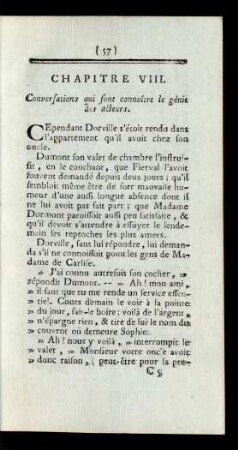 ( 57 )
CHAPITRE VIII.
Conversations qui font connoître le génie
des acteurs.
CEpendant Dorville s'étoit rendu dans
l'appartement qu'il avoit chez son
oncle.
Dumont son valet de chambre l'instrui-
sit, en le couchant, que Fierval l'avoit
souvent demandé depuis deux jours ; qu'il
sembloit même être de fort mauvaise hu-
meur d'une aussi longue absence dont il
ne lui avoit pas fait part : que Madame
Dormont paroissoit aussi peu satisfaite, &
qu'il devoit s'attendre à essuyer le lende-
main les reproches les plus amers.
Dorville, sans lui répondre, lui deman-
da s'il ne connoissoit point les gens de Ma-
dame de Carlisse.
» J'ai connu autrefois son cocher, »
répondit Dumont. -- » Ah ! mon ami,
» il faut que tu me rende un service essen-
» tiel. Cours demain le voir à la pointe
» du jour, fais-le boire ; voilà de l'argent,
» n'épargne rien, & tire de lui le nom du
» couvent où demeure Sophie.
» Ah ! nous y voilà, » interrompit le
» valet, » Monsieur votre oncle avoit
» donc raison, ( peut-être pour la pre-
C 5